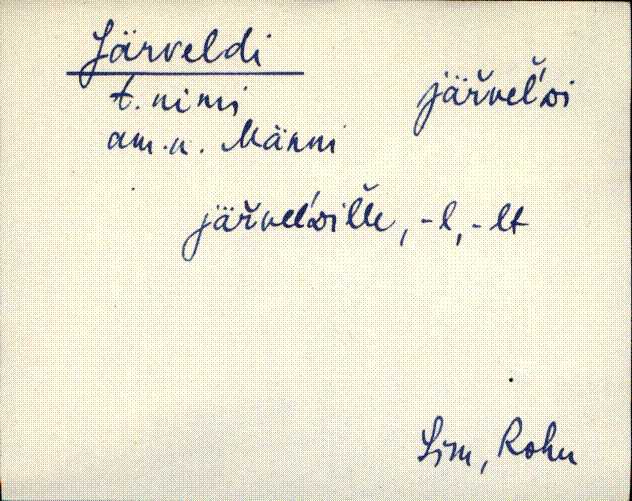 Järveldi
t. nimi
järvel'di
am. n. Männi
järvel'dille, -l, -lt
Sim, Rohu